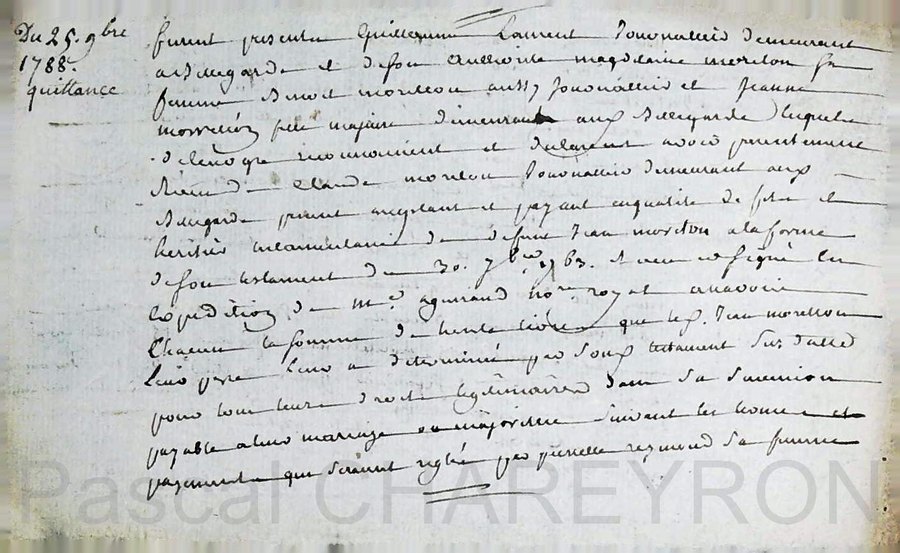 Du 25. 9bre
1788.
quittance
furent presents Guillaume Laurent Journallier demeurant
a Bellegarde et de son authorite magdelaine morelon sa
femme Benoit morellon aussy Journallier et Jeanne
morellon fille majeure demeurant aux Bellegarde lesquels
de leur gre reconnoissent et declarent avoir presentement
Receu de Claude morelon Journallier demeurant aux
Bellegarde present acceptant et payant en qualité de fils et
heritier testamentaire de deffunt Jean morellon a la forme
de son testament du 30. 7bre 1763. et receu
Expedition de Me. aguiraud nore royal a savoir
Chacun la somme de trente livres que led. Jean morellon
leur pere leur a determiné par son testament sus datté
pour tous leurs droits legitimaires dans sa succession
payable a leur mariage ou majorité suivant les termes et
payements qui seroient reglés par pierrette reymond sa femme
Pascal CHAREYRON